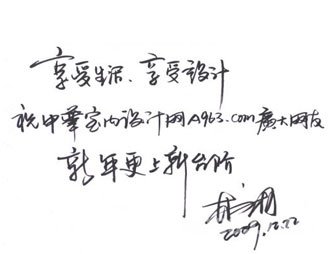 享受生活、享受设计
祝中華室内设计网A963.com廣大网友
新年更上新台阶
2009.12.22